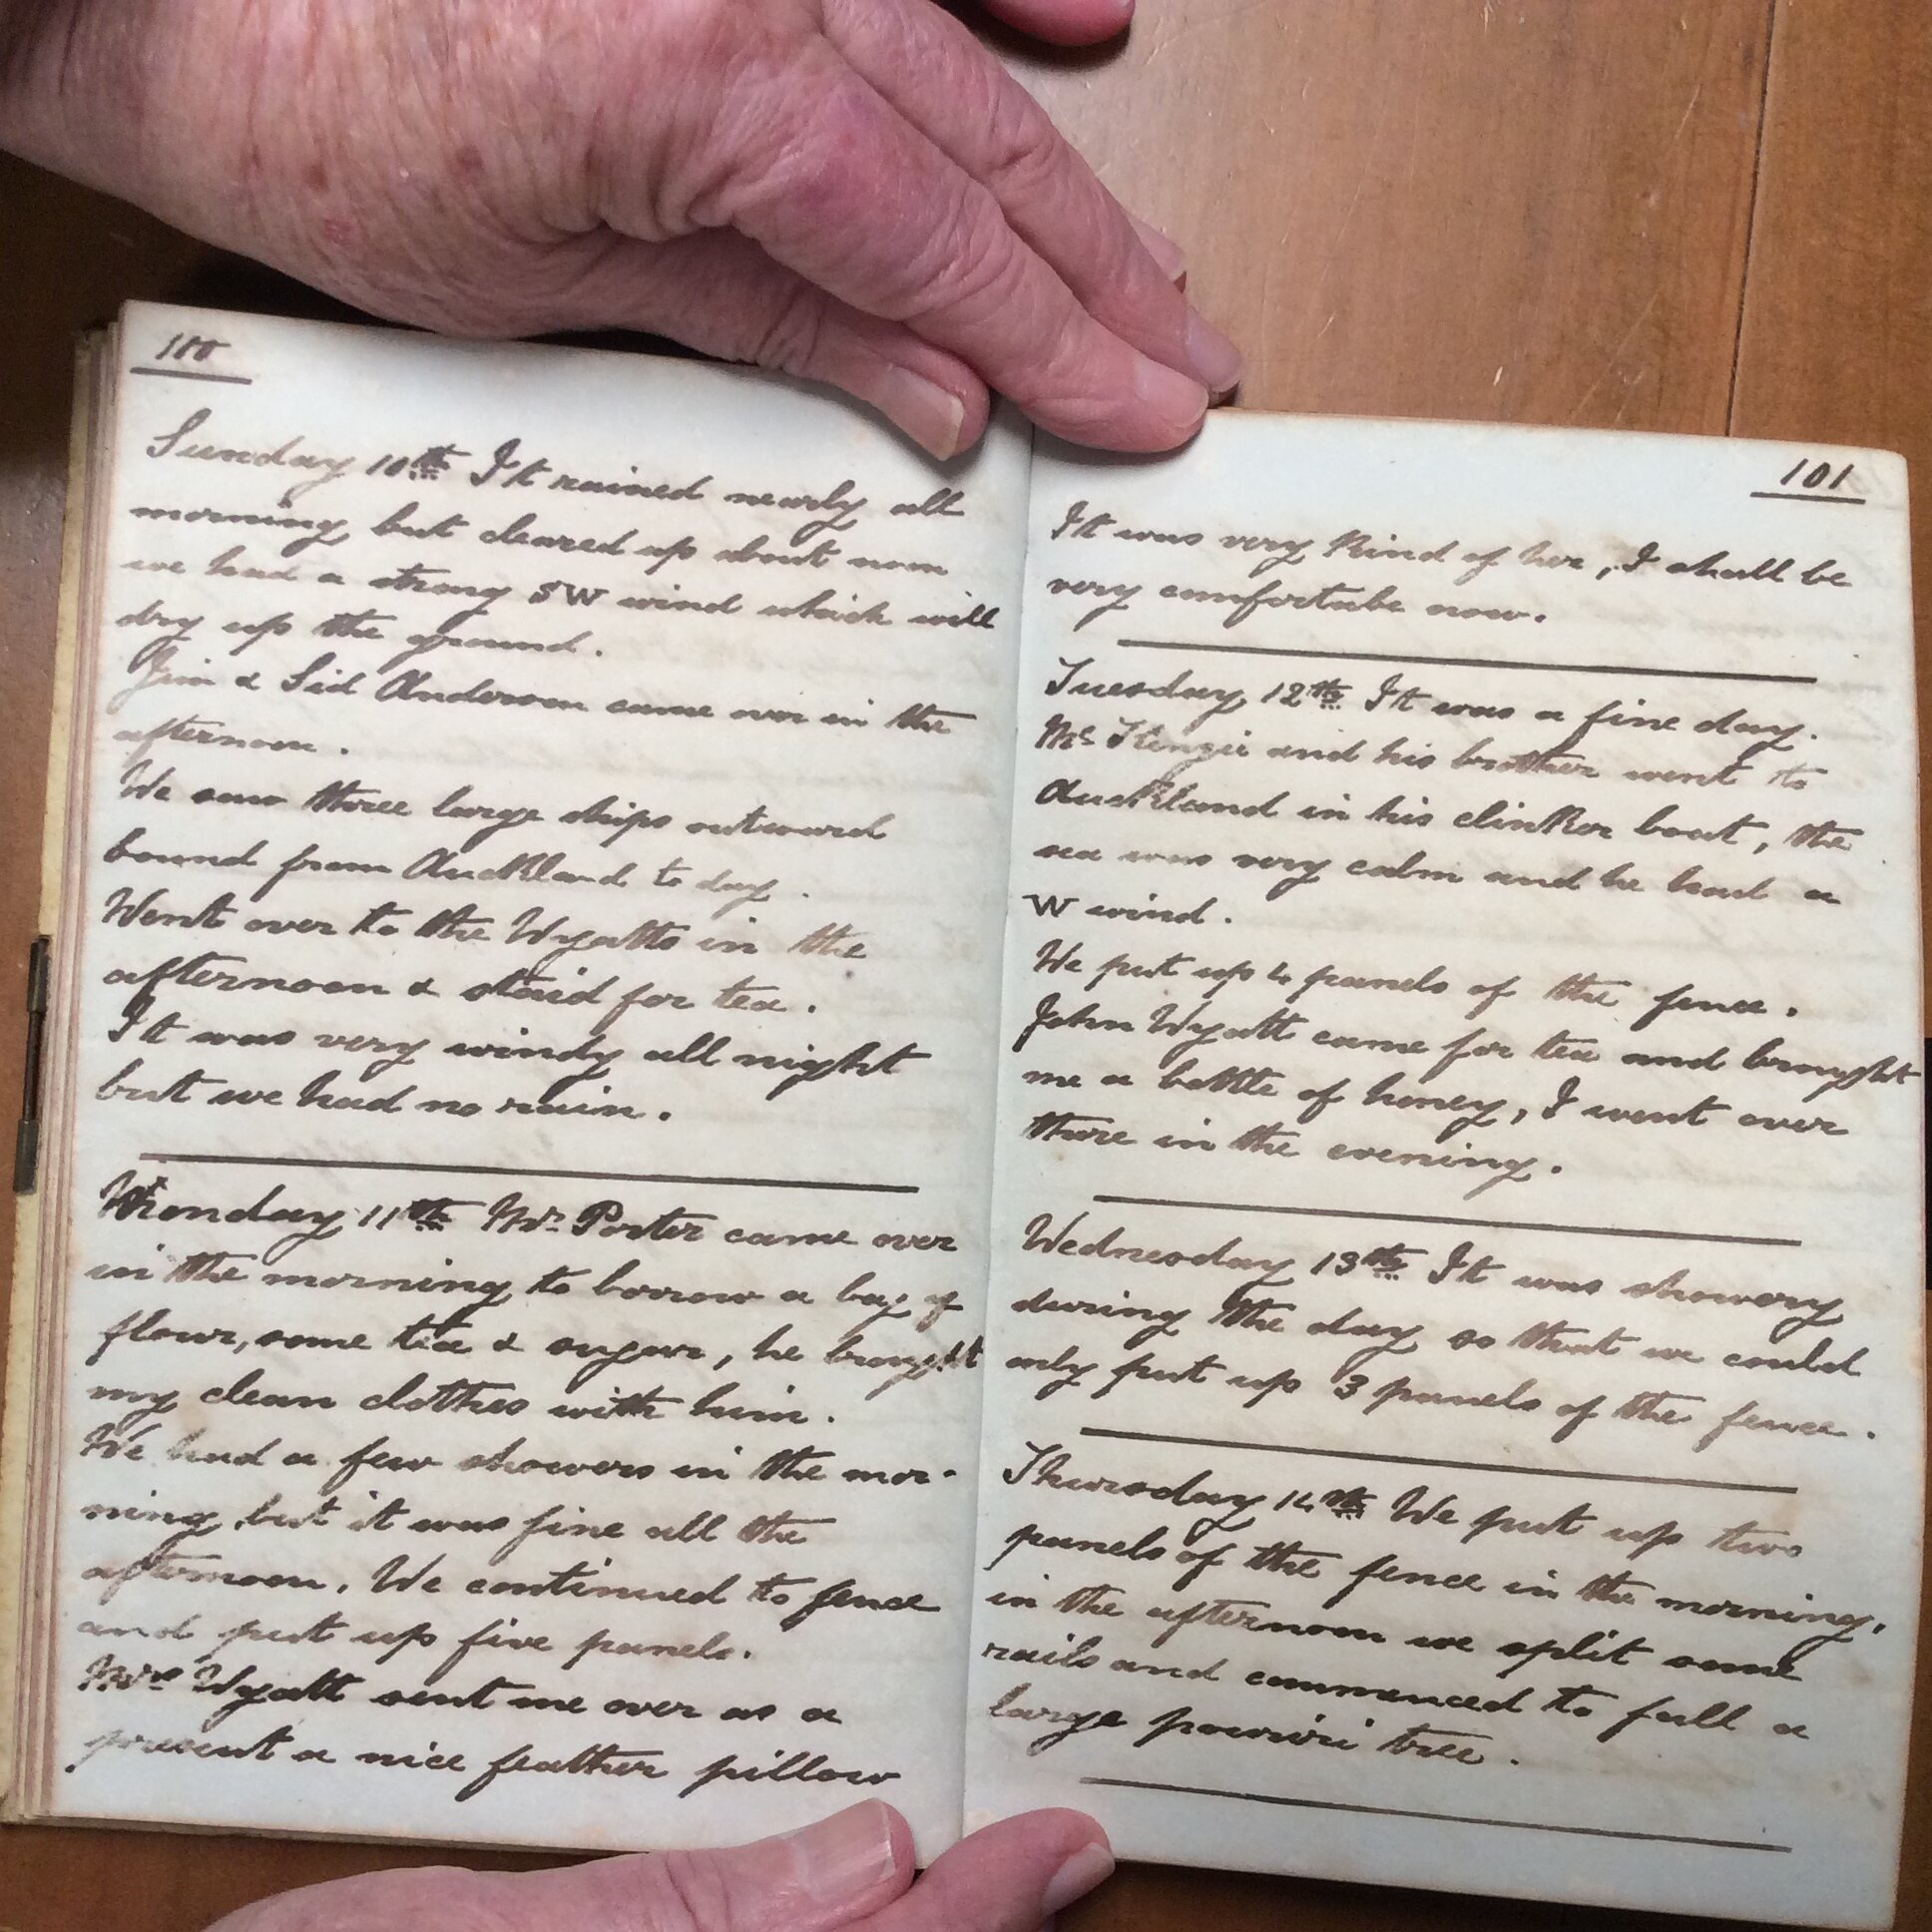 100
Sunday 10th It rained nearly all
morning but cleared up about noon
we had a strong SW wind which will
dry up the ground.
Jim & Sid Anderson came over in the
afternoon.
We saw three large ships outward
bound from Auckland to day.
Went over to the Wyatts in the
afternoon & staid for tea.
It was very windy all night
but we had no rain.
Monday 11th Mr Porter came over
in the morning to borrow a bag of
flour, some tea & sugar, he brought
my clean clothes with him.
We had a few showers in the mor-
ning, but it was fine all the
afternoon. We continued to fence
and put up five panels.
Mrs Wyatt sent me over as a
present a nice feather pillow
101
It was very kind of her, I shall be
very comfortabe now.
Tuesday 12th It was a fine day.
Mc Kenzie and his brother went to
Auckland in his clinker boat, the
sea was very calm and he had a
W wind.
We put up 4 panels of the fence.
John Wyatt came for tea and brought
me a bottle of honey, I went over
there in the evening.
Wednesday 13th It was showery
during the day so that we could
only put up 3 panels of the fence.
Thursday 14th We put up two
panels of the fence in the morning,
in the afternoon we split some
rails and commenced to fall a
large pouriri tree.